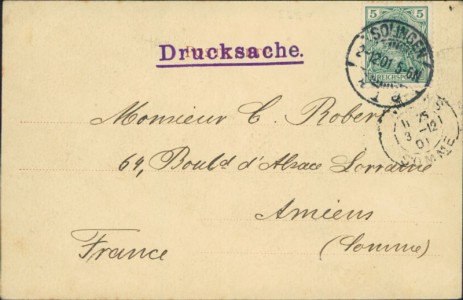 5 5
SOLINGEN
2/12.01 5-6N
REICHSPOST
Drucksache.
3 -12
01
SOMME
Monsieur C. Robert
64, Bould d'Alsace Lorraine
Amiens
France (Somme)